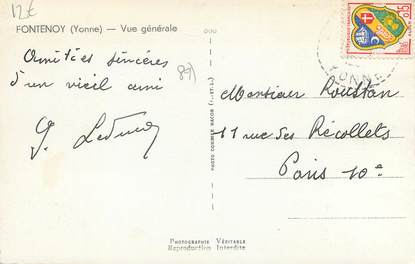 12€
FONTENOY (Yonne) — Vue générale
Amitiés sincères
d'un vieil ami
G. Leduc
89)
PHOTO COMBIER MACON
0,15
YONNE
Monsieur Roustan
11 rue des Récollets
Paris 10e
PHOTOGRAPHIE VÉRITABLE
Reproduction Interdite